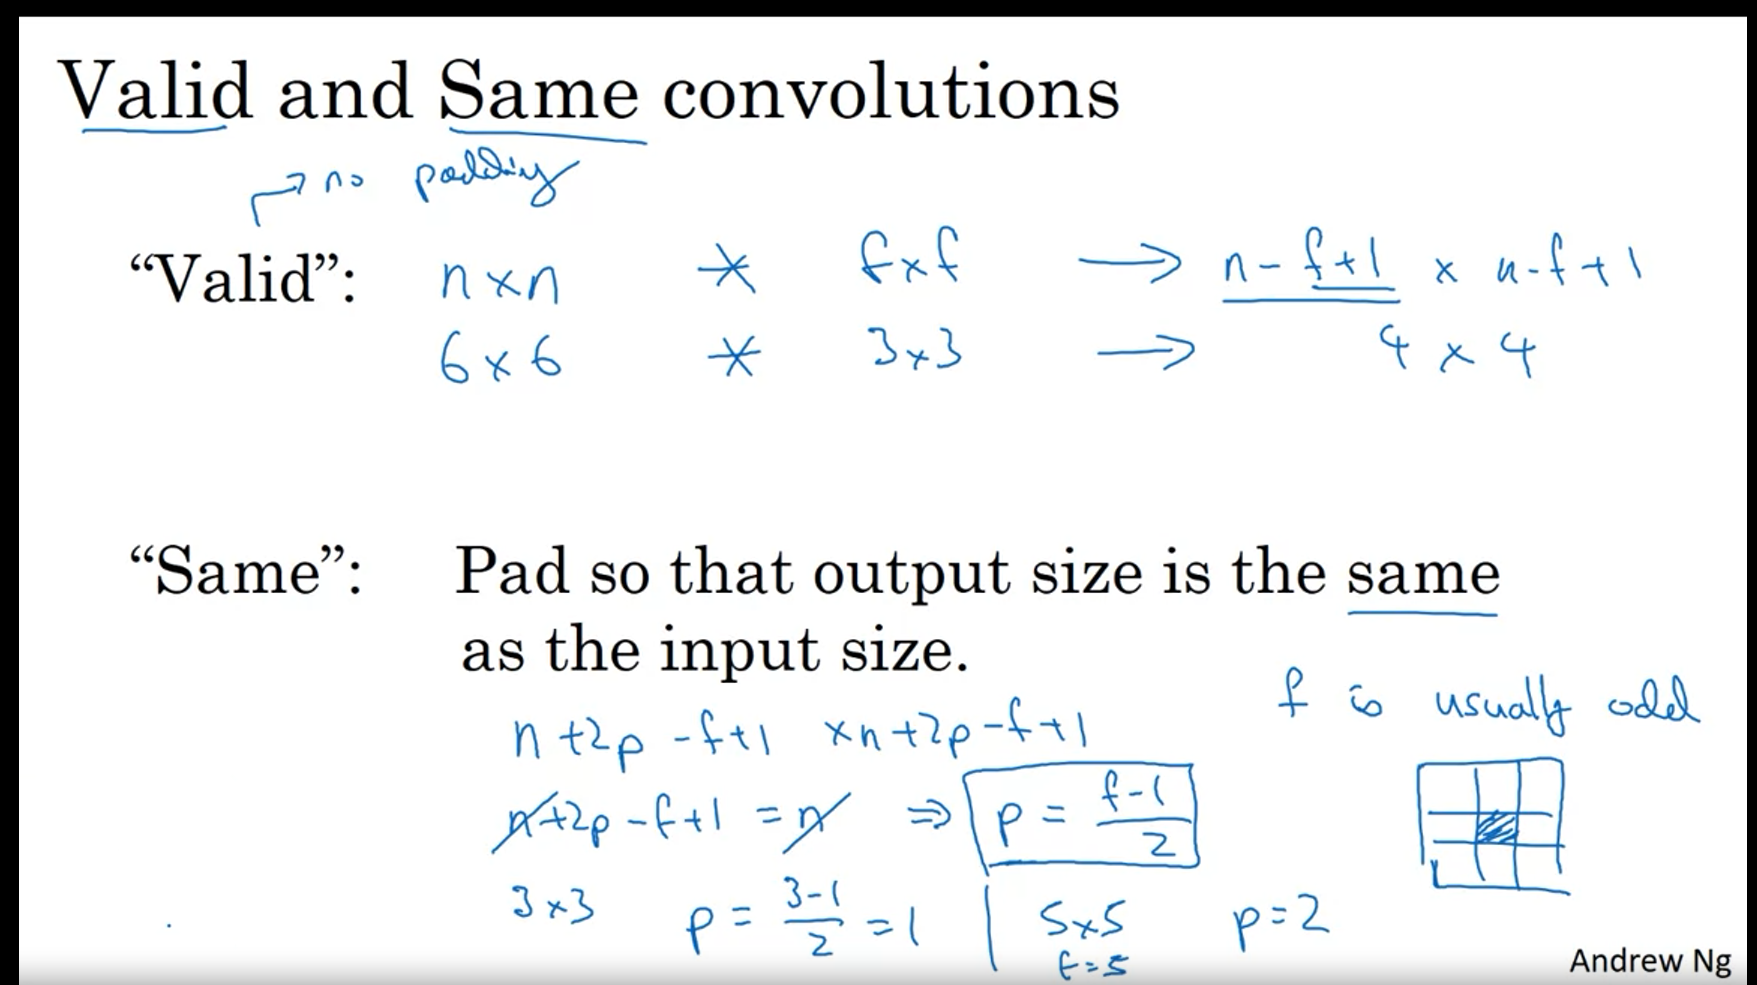 Valid and Same convolutions
→ no padding
“Valid”: n×n * f×f → n-f+1 × n-f+1
6×6 * 3×3 → 4 × 4
“Same”: Pad so that output size is the same
as the input size.
f is usually odd
n+2p-f+1 ×n+2p-f+1
n+2p-f+1 = n ⇒ p = (f-1)/2
3×3 p = (3-1)/2 = 1 | 5×5 p=2
f=5
Andrew Ng